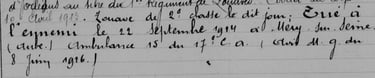 d'Orléans au titre du 1er Régiment de Zouaves
10 Août 1913. Zouave de 2e classe le dit jour; Tué à
l'ennemi le 22 Septembre 1914 à Méry sur Seine
(Aube) Ambulance 15 du 17e C.a. (avis M. g. du
8 Juin 1916.)